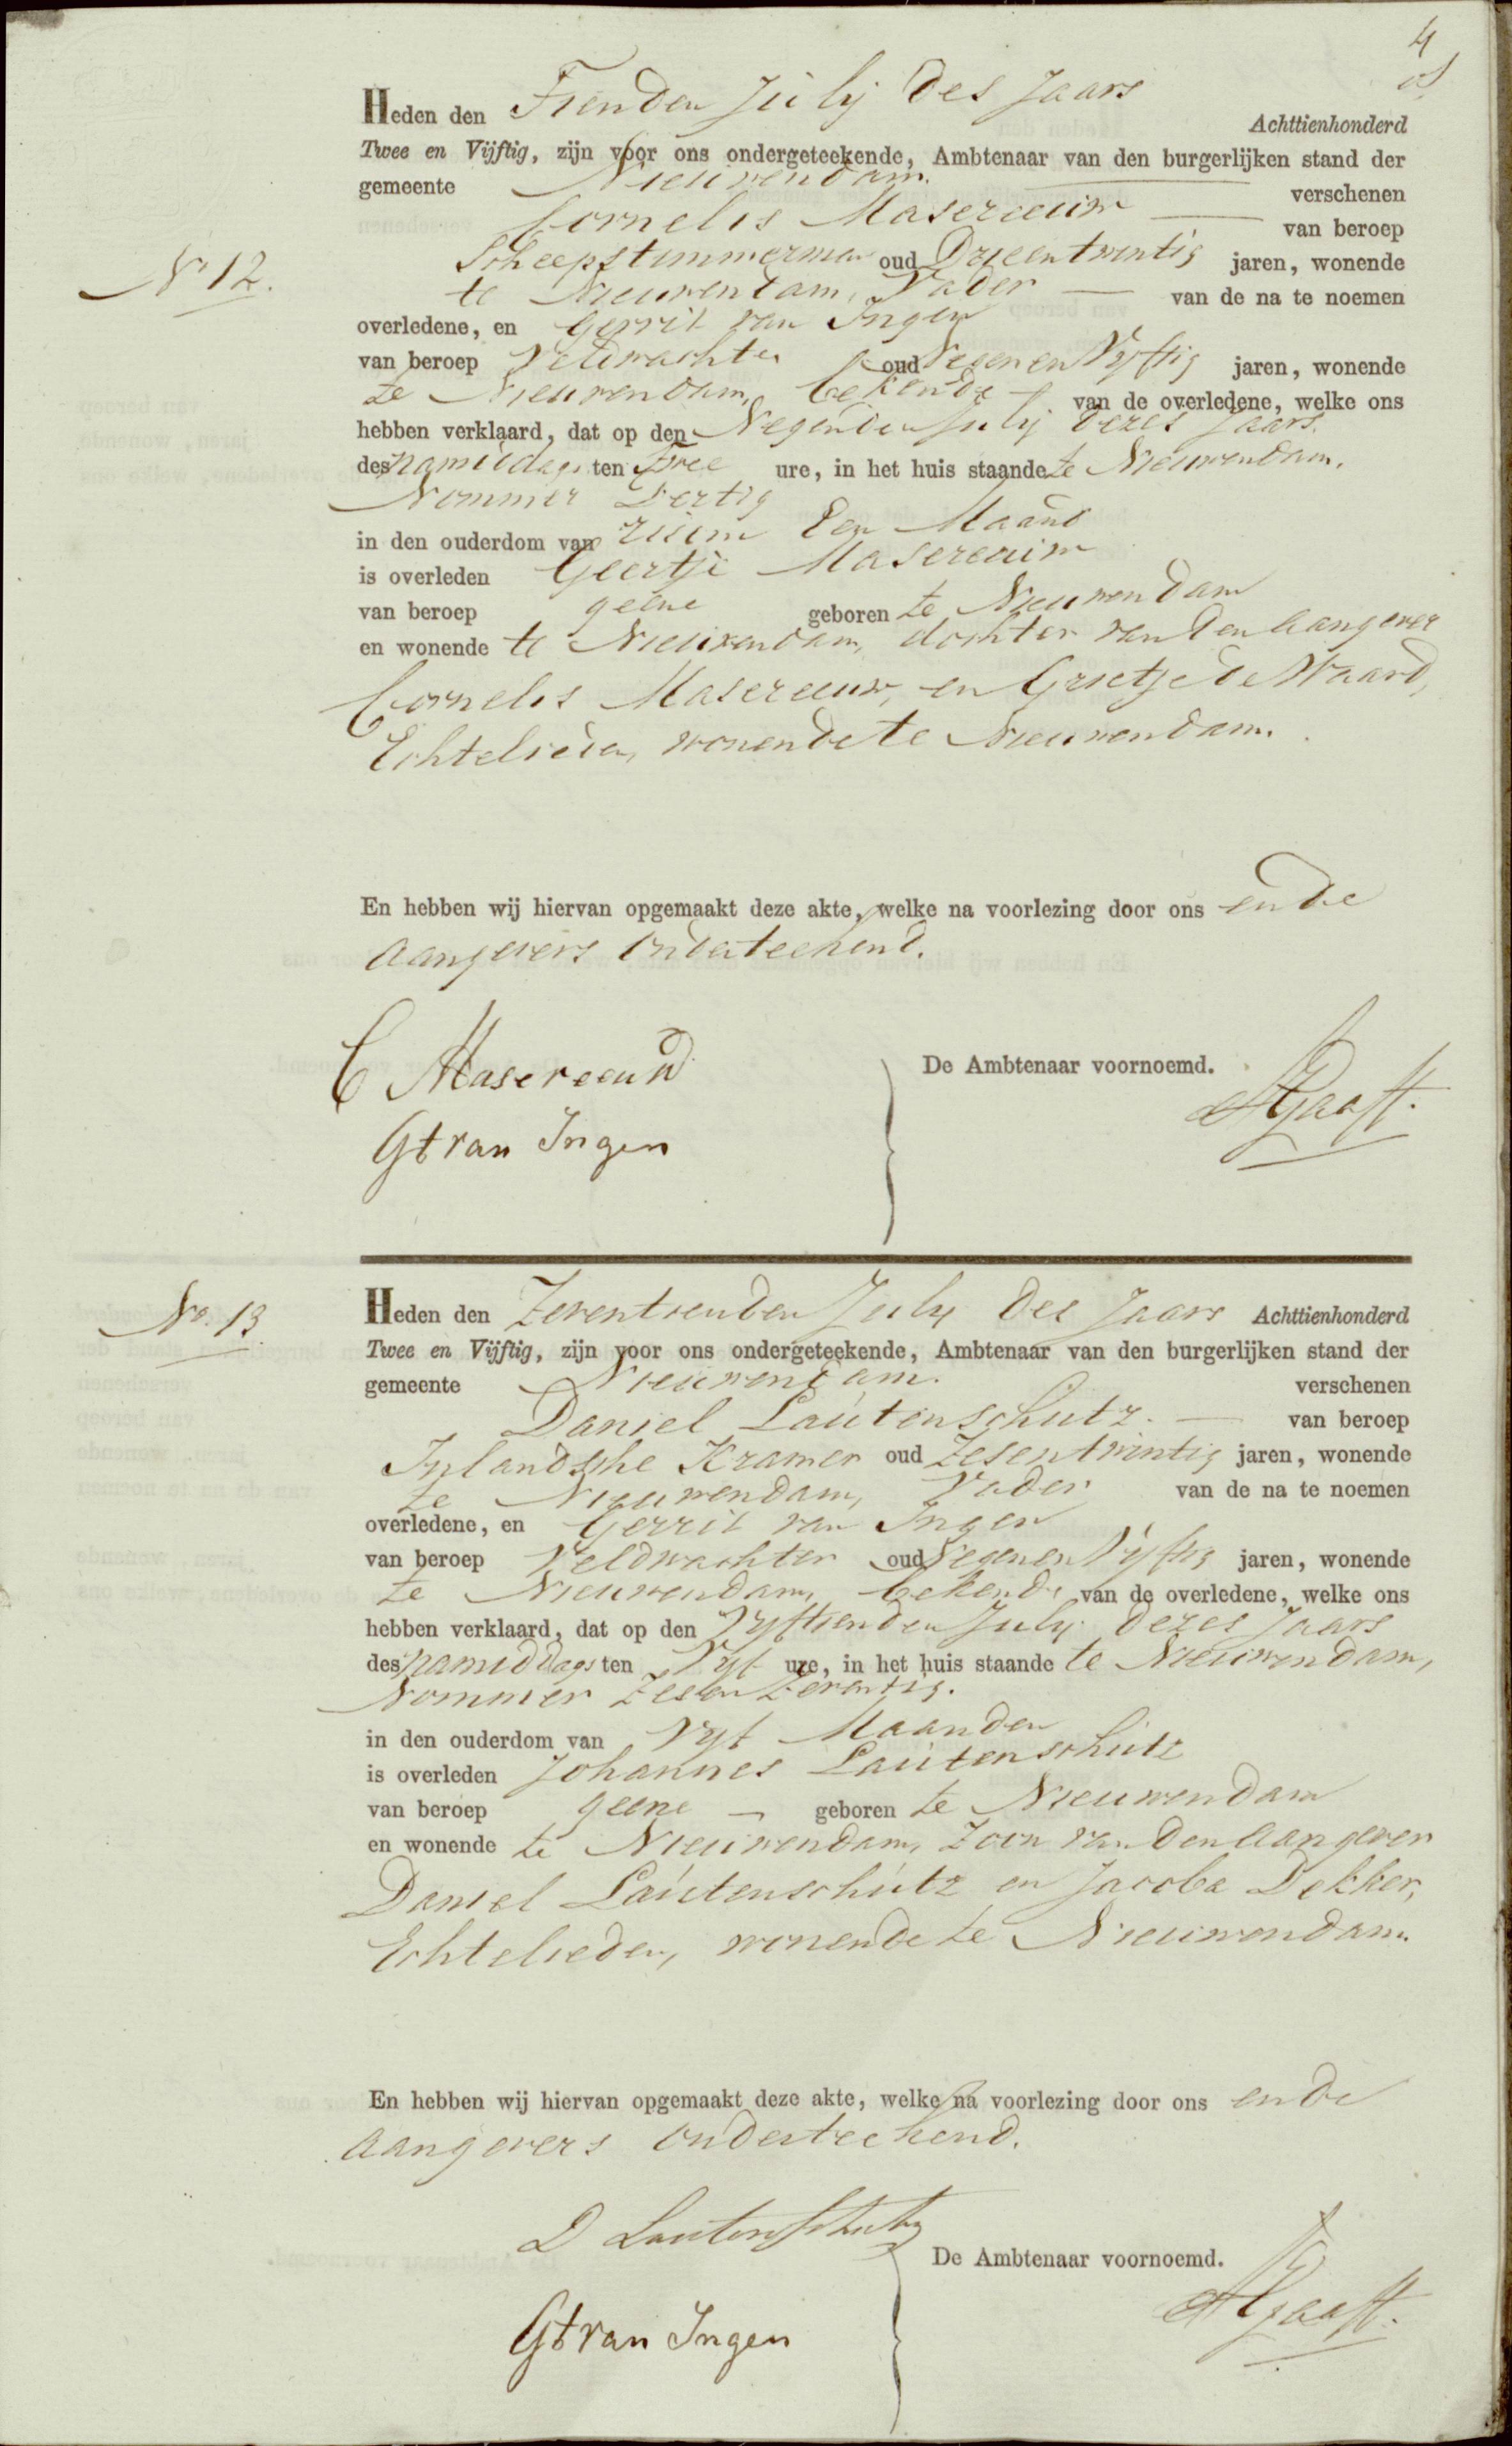 4
Heden den Tienden Julij des Jaars Achttienhonderd
Twee en Vijftig, zijn voor ons ondergeteekende, Ambtenaar van den burgerlijken stand der
gemeente Nieuwendam. verschenen
Cornelis Masereeuw van beroep
No 12.
Scheepstimmerman oud Drieentwintig jaren, wonende
te Nieuwendam, Vader van de na te noemen
overledene, en Gerrit van Ingen
van beroep Veldwachter oud Negenenvyftig jaren, wonende
te Nieuwendam, bekende van de overledene, welke ons
hebben verklaard, dat op den Negenden Julij dezes Jaars
des namiddags ten twee ure, in het huis staande te Nieuwendam,
Nommer Dertig
in den ouderdom van ruim Een Maand
is overleden Geertje Masereeuw
van beroep geene geboren te Nieuwendam
en wonende te Nieuwendam, dochter van den aangever
Cornelis Masereeuw, en Grietje de Waard,
Echtelieden, wonende te Nieuwendam.
En hebben wij hiervan opgemaakt deze akte, welke na voorlezing door ons en de
aangevers onderteekend.
De Ambtenaar voornoemd.
C Masereeuw
Gt van Ingen
No. 13.
Heden den Zeventienden July des Jaars Achttienhonderd
Twee en Vijftig, zijn voor ons ondergeteekende, Ambtenaar van den burgerlijken stand der
gemeente Nieuwendam. verschenen
Daniel Lautenschutz. van beroep
Inlandsche Kramer oud Zesentwintig jaren, wonende
te Nieuwendam, Vader van de na te noemen
overledene, en Gerrit van Ingen
van beroep Veldwachter oud Negenenvyftig jaren, wonende
te Nieuwendam, bekende van de overledene, welke ons
hebben verklaard, dat op den Vyftienden July dezes Jaars
des namiddags ten Vyf ure, in het huis staande te Nieuwendam,
Nommer Zesenzeventig.
in den ouderdom van Vyf Maanden
is overleden Johannes Lautenschutz
van beroep geene geboren te Nieuwendam
en wonende te Nieuwendam, Zoon van den aangever
Daniel Lautenschutz en Jacoba Dekker,
Echtelieden, wonende te Nieuwendam.
En hebben wij hiervan opgemaakt deze akte, welke na voorlezing door ons en de
aangevers onderteekend.
D Lautenschutz
De Ambtenaar voornoemd.
Gt van Ingen